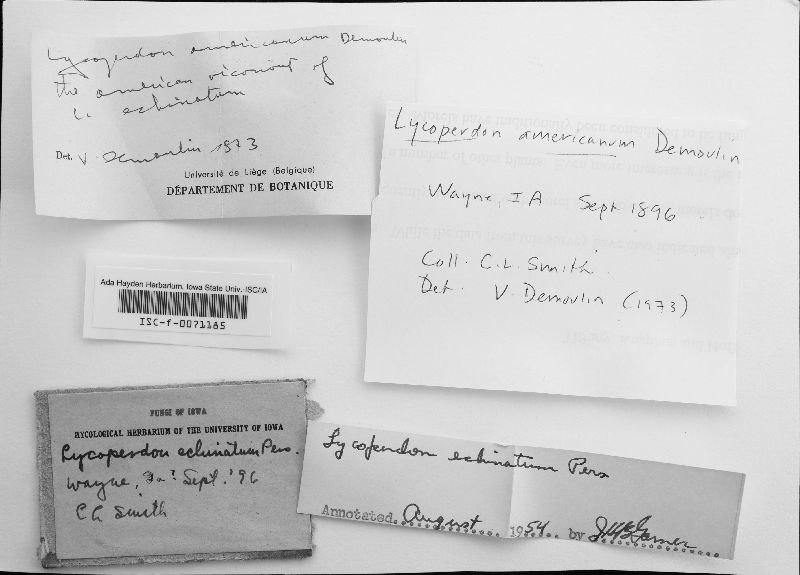 Lycoperdon americanum Demoulin
the american vicariant of
L. echinatum
Det. V. Demoulin 1973
Université de Liège (Belgique)
DÉPARTEMENT DE BOTANIQUE
Lycoperdon americanum Demoulin
Wayne, IA Sept 1896
Coll. C.L. Smith
Det. V. Demoulin (1973)
Ada Hayden Herbarium, Iowa State Univ.-ISC/IA
ISC-f-0071185
FUNGI OF IOWA
MYCOLOGICAL HERBARIUM OF THE UNIVERSITY OF IOWA
Lycoperdon echinatum Pers.
Wayne, Ia? Sept. '96
Smith
Lycoperdon echinatum Pers
Annotated August 1954 by